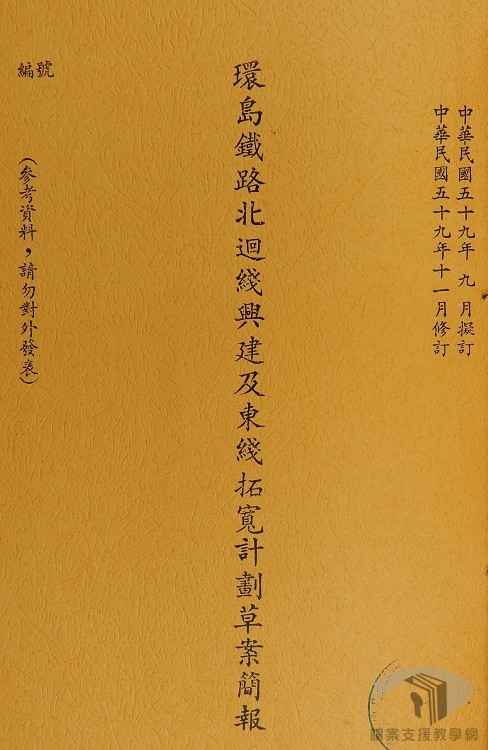 中華民國五十九年 九 月擬訂
中華民國五十九年十一月修訂
環島鐵路北迴綫興建及東綫拓寬計劃草案簡報
編號
(參考資料，請勿對外發表)
檔案支援教學網